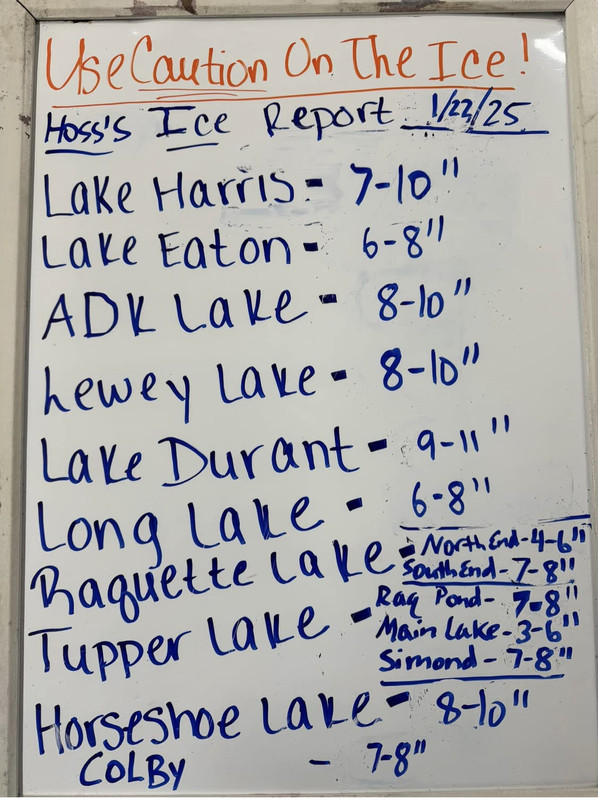 Use Caution On The Ice!
Hoss's Ice Report 1/22/25
Lake Harris - 7-10"
Lake Eaton - 6-8"
ADK Lake - 8-10"
Lewey Lake - 8-10"
Lake Durant - 9-11"
Long Lake - 6-8"
Raquette Lake - North End - 4-6"
South End - 7-8"
Tupper Lake - Raq Pond - 7-8"
Main Lake - 3-6"
Simond - 7-8"
Horseshoe Lake - 8-10"
COLBY - 7-8"